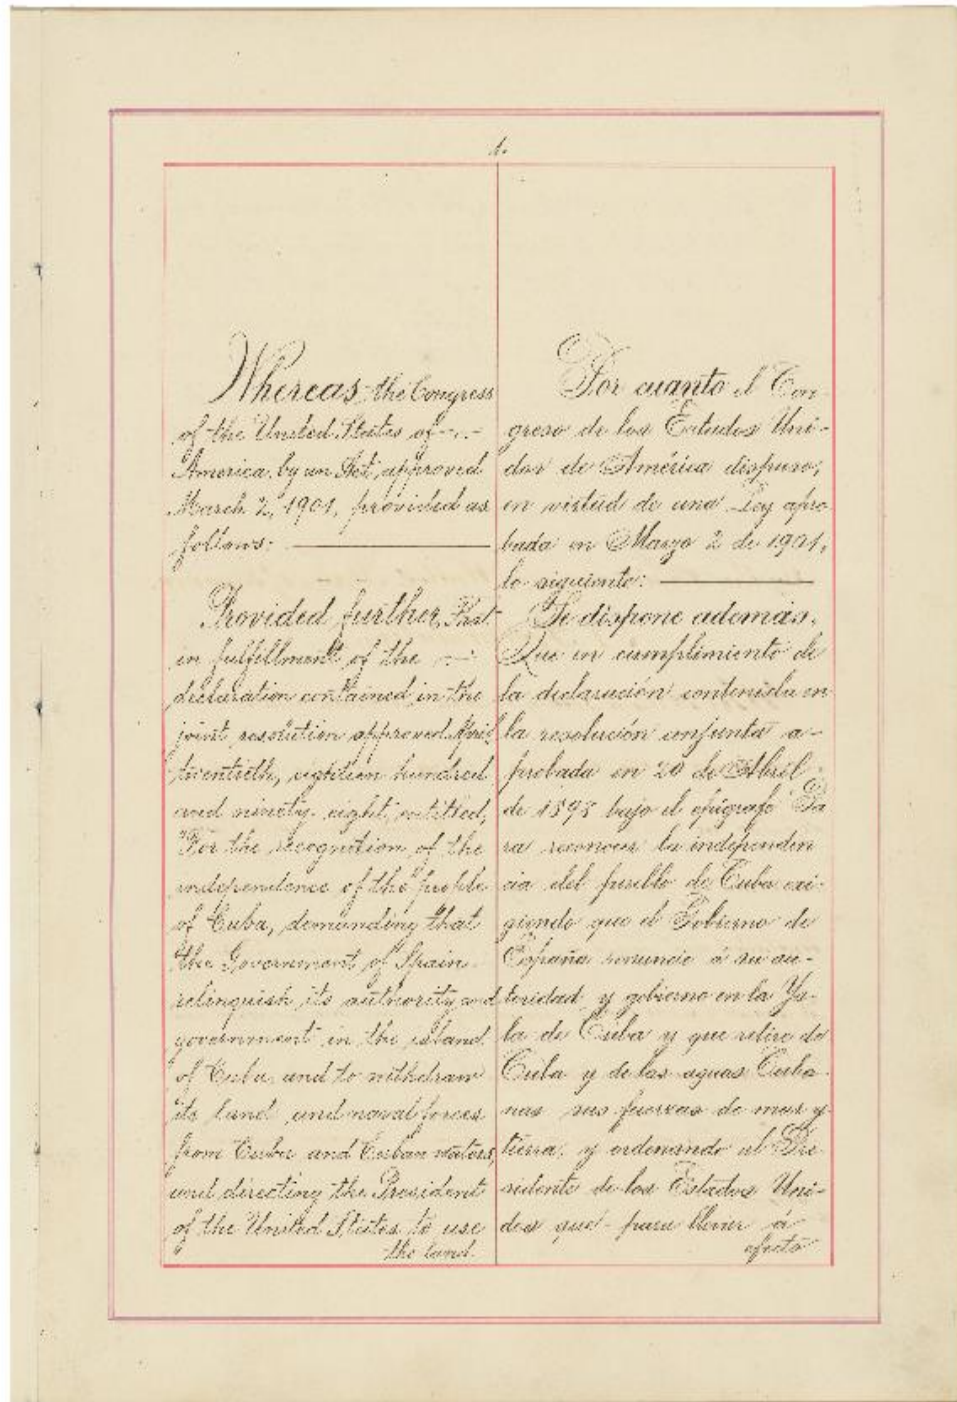 1.
Whereas the Congress
of the United States of
America, by an Act, approved
March 2, 1901, provided as
follows:
Provided further, That
in fulfillment of the
declaration contained in the
joint resolution approved April
twentieth, eighteen hundred
and ninety-eight, entitled,
"For the recognition of the
independence of the people
of Cuba, demanding that
the Government of Spain
relinquish its authority and
government in the island
of Cuba, and to withdraw
its land and naval forces
from Cuba and Cuban waters,
and directing the President
of the United States to use
the land
Por cuanto el Con-
greso de los Estados Uni-
dos de América dispuso,
en virtud de una Ley apro
bada en Marzo 2 de 1901,
lo siguiente:
Se dispone además,
Que en cumplimiento de
la declaración contenida en
la resolución conjunta a-
probada en 20 de Abril
de 1898 bajo el epígrafe "Pa
ra reconocer la independen
cia del pueblo de Cuba exi-
giendo que el Gobierno de
España renuncie á su au-
toridad y gobierno en la Ys-
la de Cuba y que retire de
Cuba y de las aguas Cuba-
nas sus fuerzas de mar y
tierra, y ordenando al Pre
sidente de los Estados Uni-
dos que para llevar á
efecto